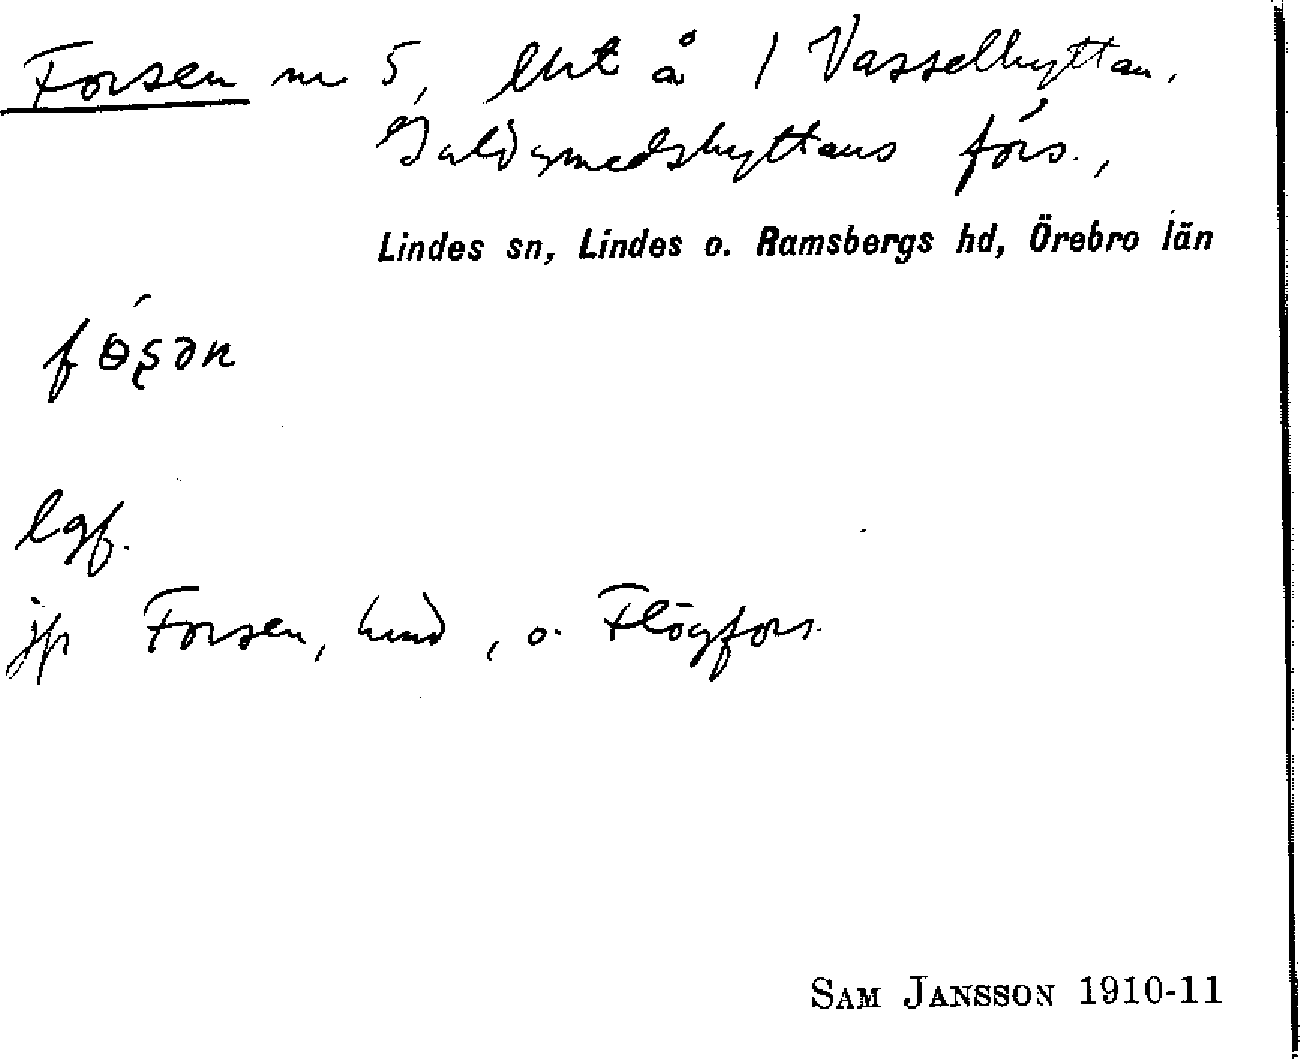 Forsen nr 5, lht å 1 Vasselhyttan,
Guldsmedshyttans förs.,
Lindes sn, Lindes o. Ramsbergs hd, Örebro län
fɵ́ʂən
lgf.
jfr Forsen, hmd, o. Flögfors.
SAM JANSSON 1910-11